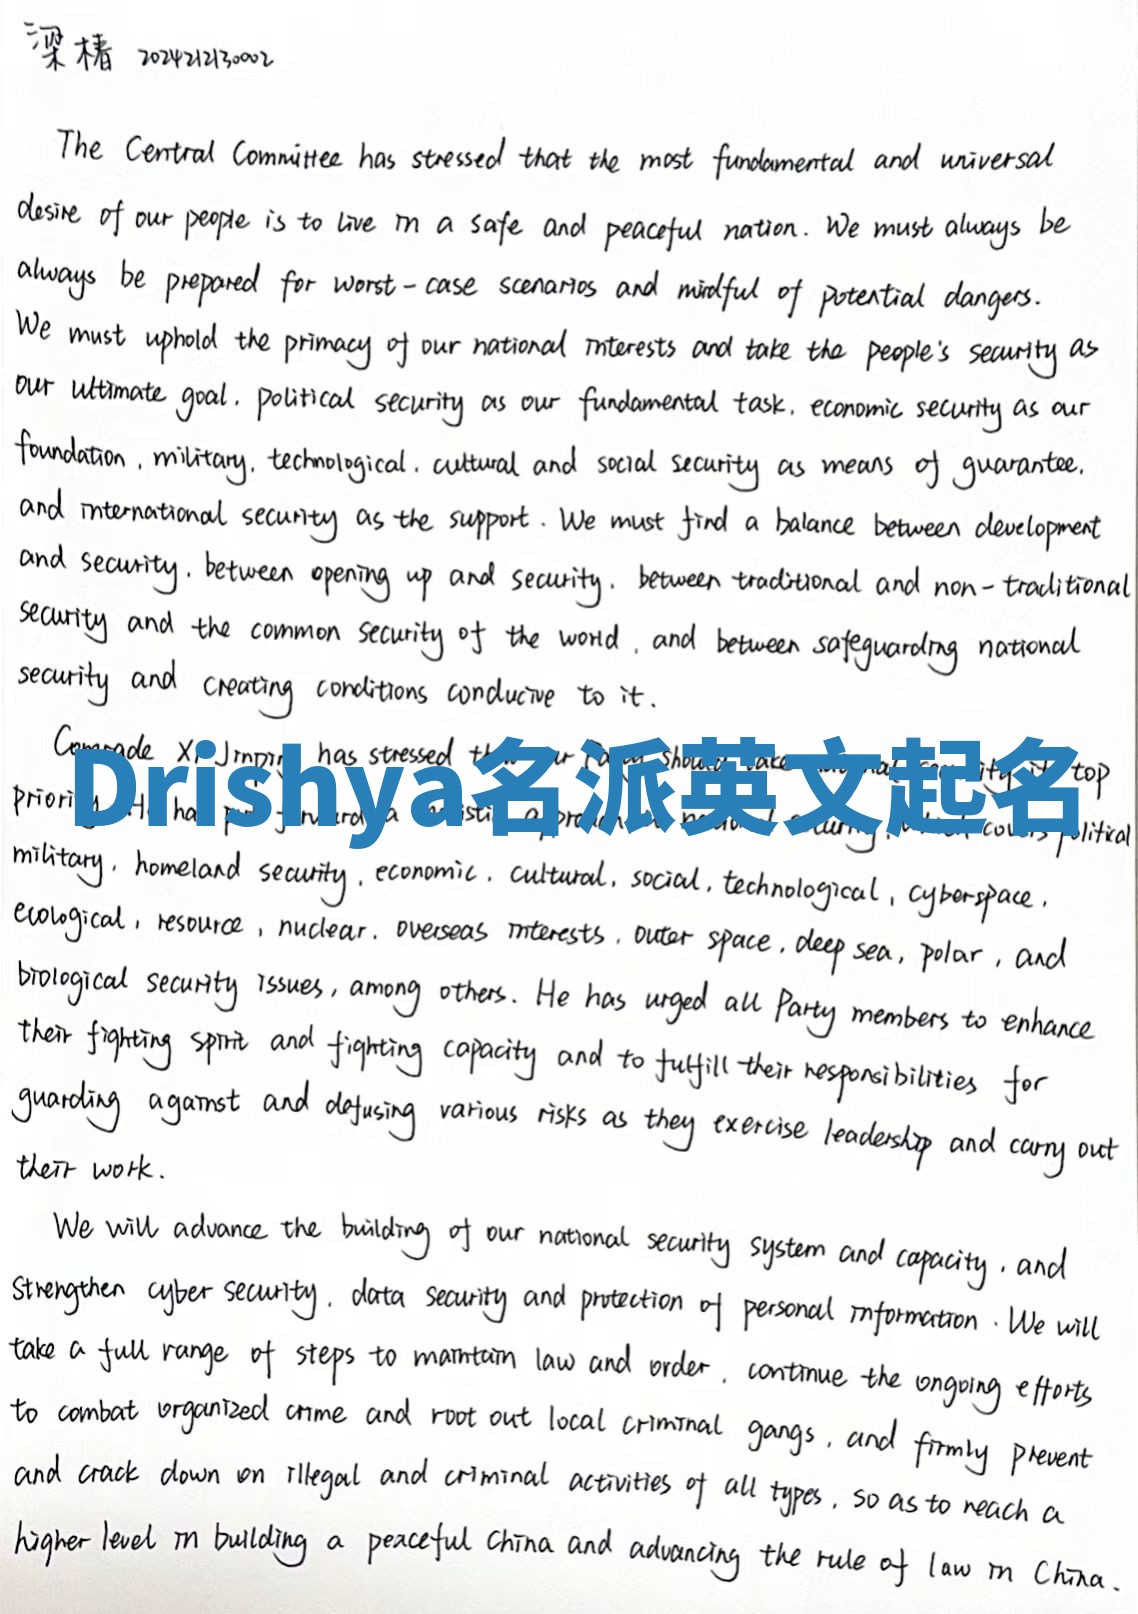 梁椿 2024212130002
The Central Committee has stressed that the most fundamental and universal
desire of our people is to live in a safe and peaceful nation. We must always be
always be prepared for worst-case scenarios and mindful of potential dangers.
We must uphold the primacy of our national interests and take the people's security as
our ultimate goal, political security as our fundamental task, economic security as our
foundation, military, technological, cultural and social security as means of guarantee,
and international security as the support. We must find a balance between development
and security, between opening up and security, between traditional and non-traditional
security and the common security of the world, and between safeguarding national
security and creating conditions conducive to it.
Comrade Xi Jinping has stressed top
Drishya名派英文起名
covers political
military, homeland security, economic, cultural, social, technological, cyberspace,
ecological, resource, nuclear, overseas interests, outer space, deep sea, polar, and
biological security issues, among others. He has urged all Party members to enhance
their fighting spirit and fighting capacity and to fulfill their responsibilities for
guarding against and defusing various risks as they exercise leadership and carry out
their work.
We will advance the building of our national security system and capacity, and
strengthen cyber security, data security and protection of personal information. We will
take a full range of steps to maintain law and order, continue the ongoing efforts
to combat organized crime and root out local criminal gangs, and firmly prevent
and crack down on illegal and criminal activities of all types, so as to reach a
higher level in building a peaceful China and advancing the rule of law in China.